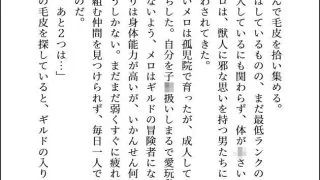 んで毛皮を拾い集める。
はしているものの、まだ最低ランクの
人しているにも関わらず、体が さい
ロは、獣人に邪な思いを持つ男たちに
わされてきた。
いメロは孤児院で育ったが、成人して
ちした。自分を子 扱いしまるで愛玩
ないよう、メロはギルドの冒険者にな
りは身体能力が高いが、いかんせん何
うしかない。まだまだ弱くすぐに疲れ
組む仲間を見つけられず、毎日一人で
のだ。
あと2つは…」
の毛皮を探していると、ギルドの入り